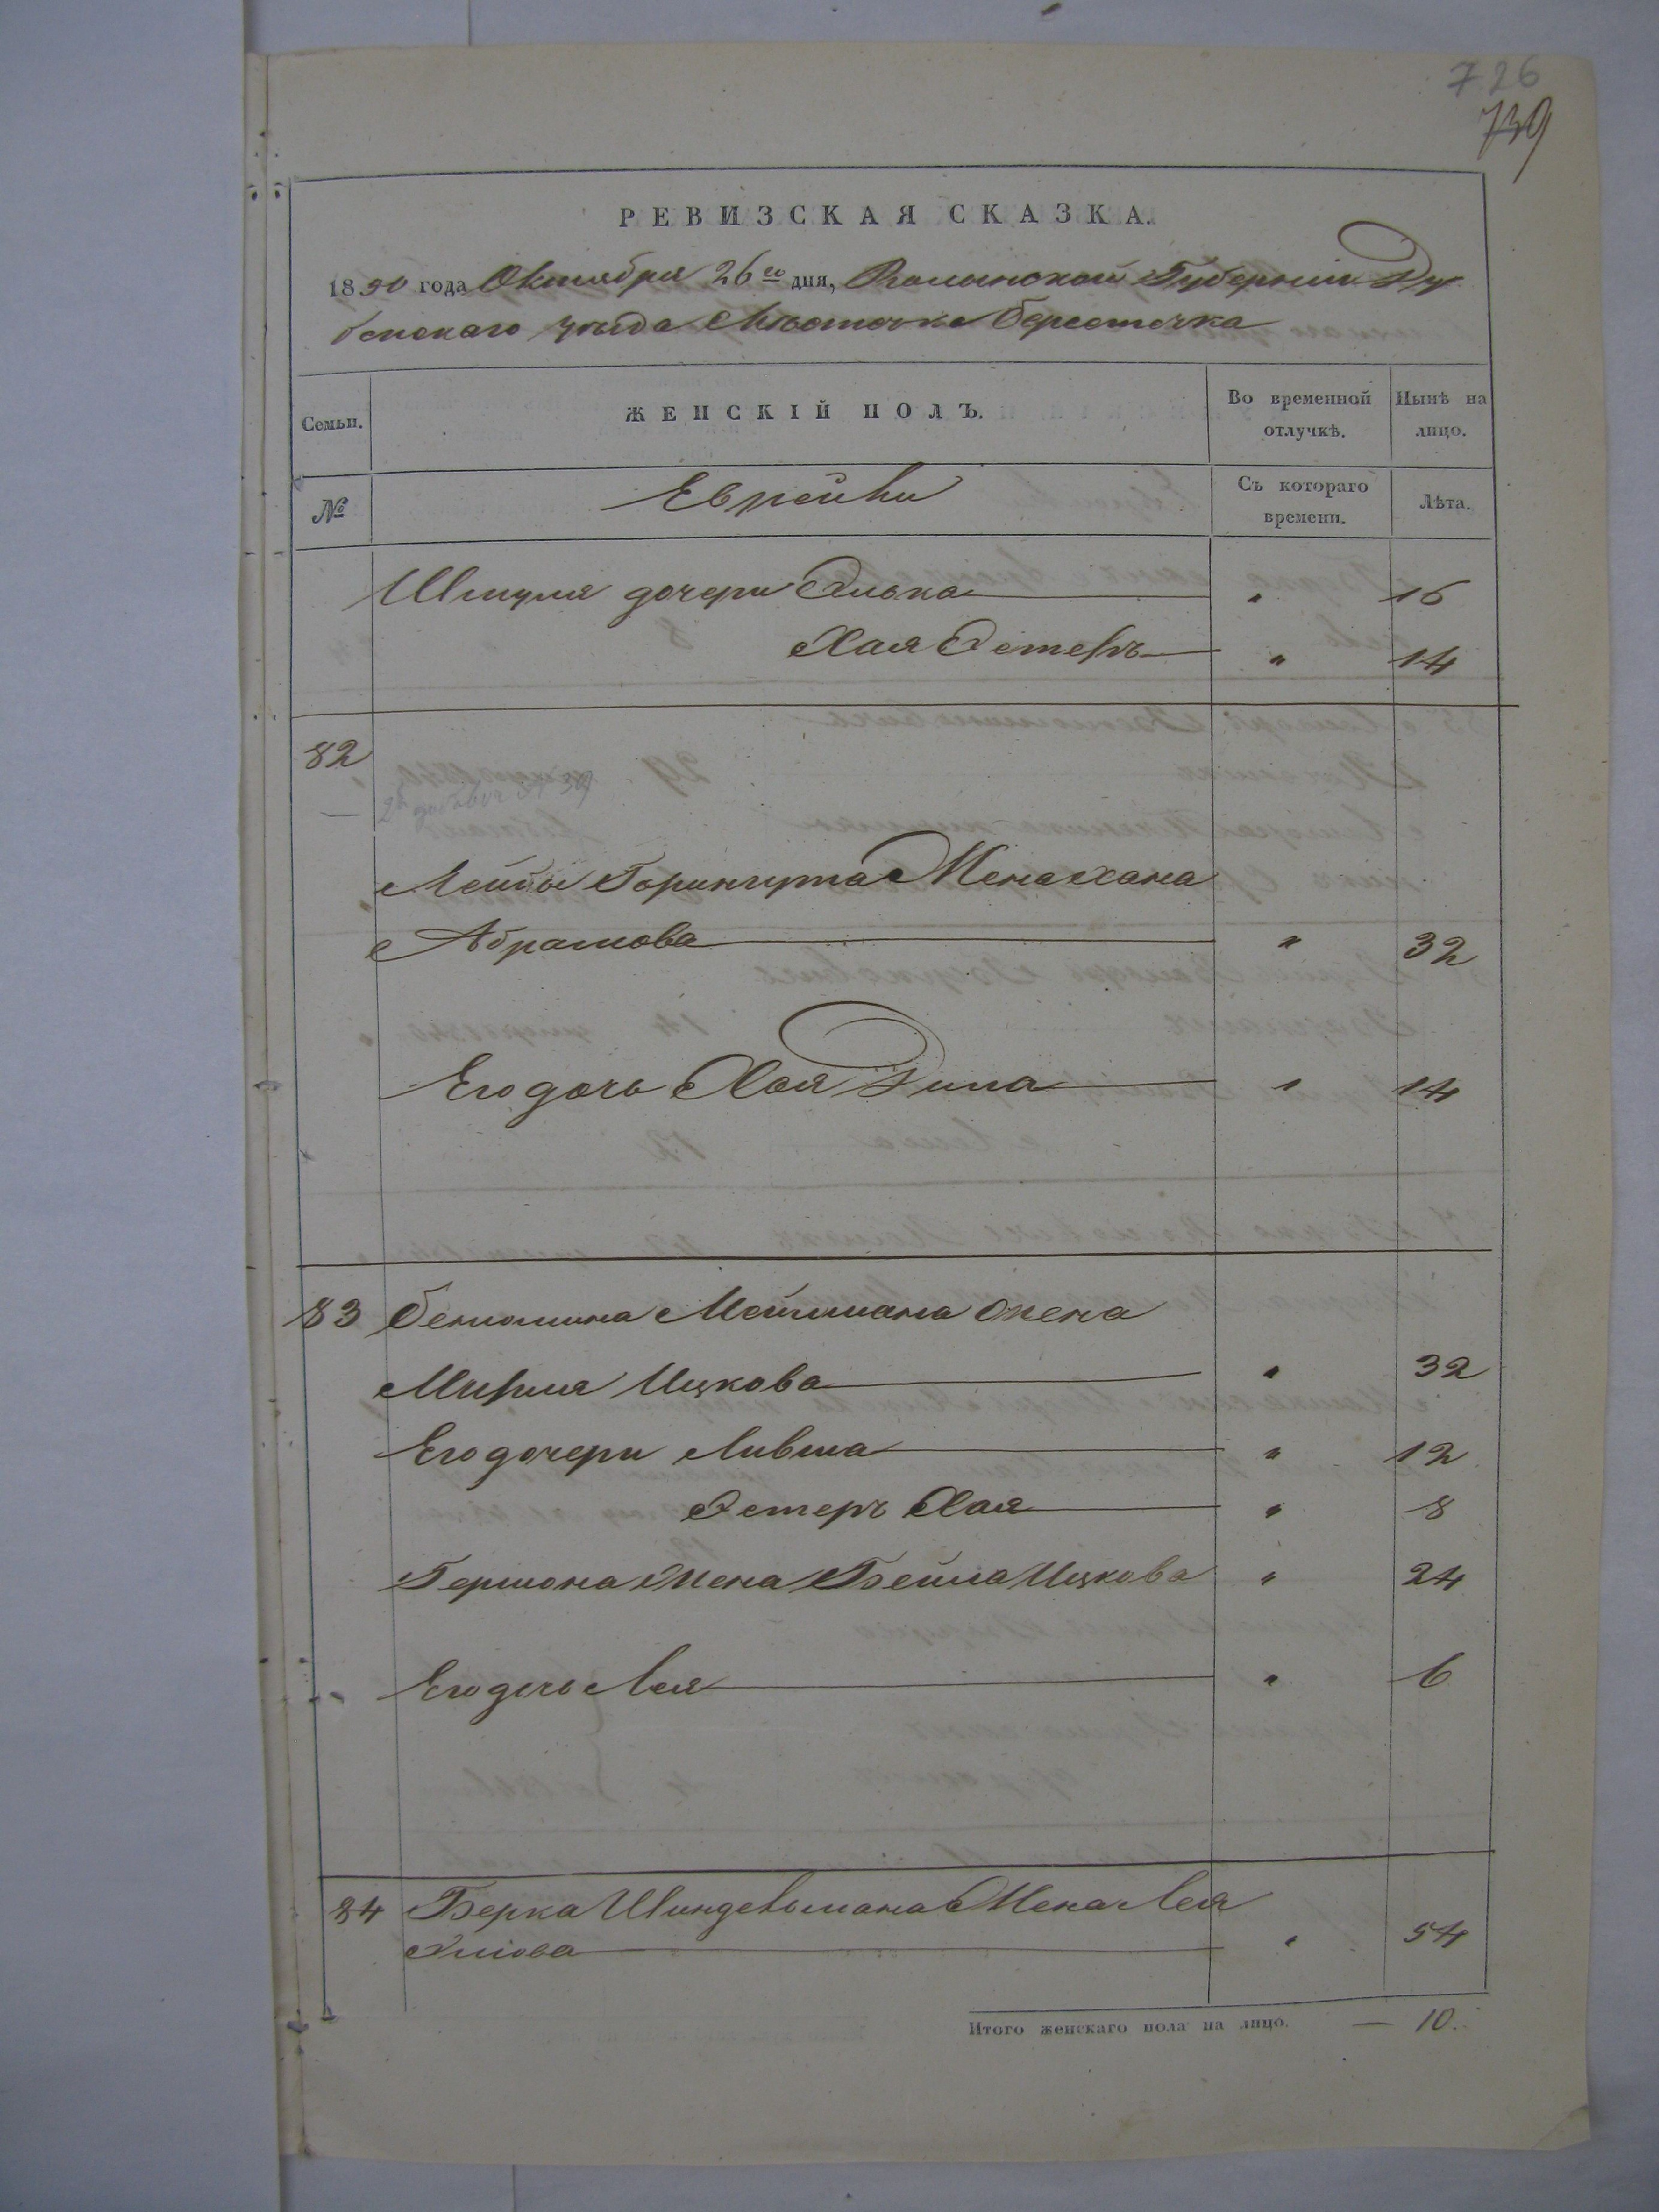 726
739
РЕВИЗСКАЯ СКАЗКА.
1850 года Октября 26го дня, Волынской Губернии Ду
бенскаго уезда Мѣстечка Берестечка
Семьи.
ЖЕНСКІЙ ПОЛЪ.
Во временной отлучкѣ.
Нынѣ на лицо.
№
Еврейки
Съ котораго времени.
Лѣта.
Шмуля дочери Элька " 16
Хая Эстеръ " 14
82
Лейбы Горингурта Жена Хана
Абрамова " 32
Его дочь Хая Дина " 14
83 Бениомина Мейшмана жена
Мирля Ицкова " 32
Его дочери Ливша " 12
Эстеръ Хая " 8
Гершона жена Бейла Ицкова " 24
Его дочь Лея " 6
84 Берка Шиндельмана Жена Лея
" 54
Итого женскаго пола на лицо. — 10.